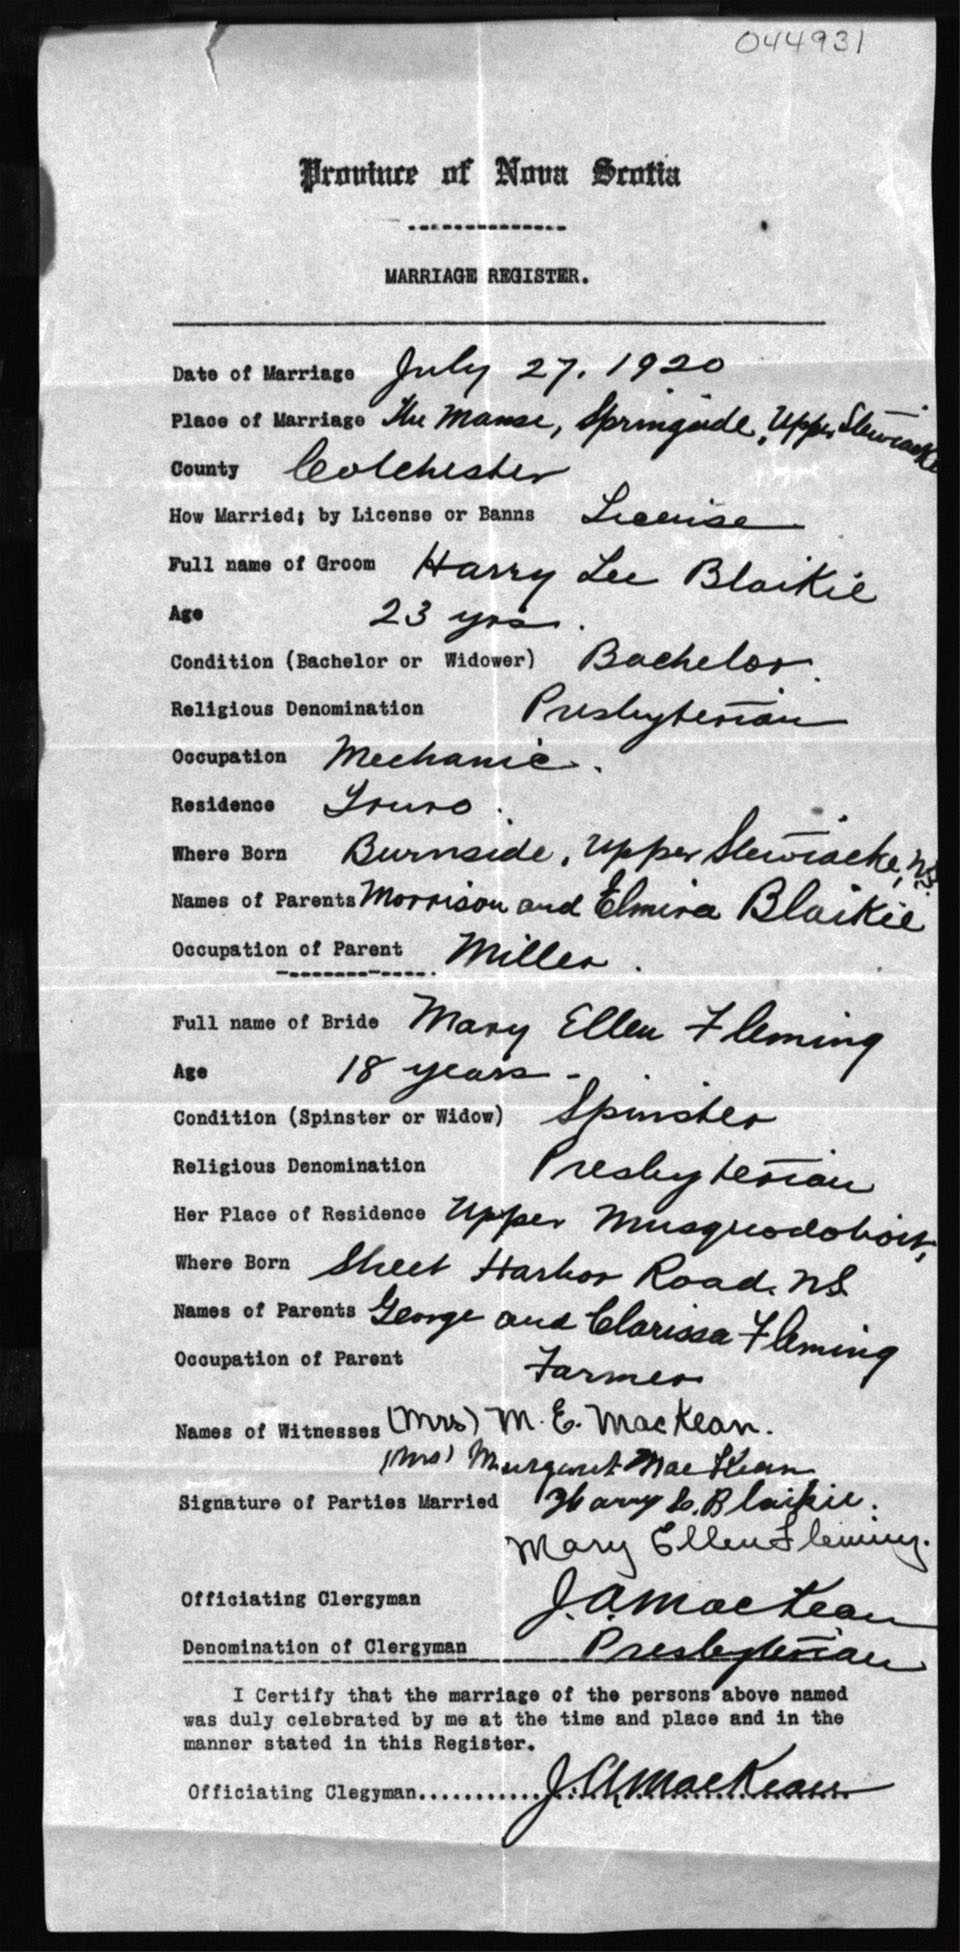 044931
Province of Nova Scotia
MARRIAGE REGISTER.
Date of Marriage July 27, 1920
Place of Marriage The Manse, Springside, Upper Stewiacke
County Colchester
How Married; by License or Banns License
Full name of Groom Harry Lee Blaikie
Age 23 yrs.
Condition (Bachelor or Widower) Bachelor.
Religious Denomination Presbyterian
Occupation Mechanic.
Residence Truro.
Where Born Burnside, Upper Stewiacke, N.S.
Names of Parents Morrison and Elmira Blaikie
Occupation of Parent Miller.
Full name of Bride Mary Ellen Fleming
Age 18 years -
Condition (Spinster or Widow) Spinster
Religious Denomination Presbyterian
Her Place of Residence Upper Musquodoboit,
Where Born Sheet Harbor Road. NS
Names of Parents George and Clarissa Fleming
Occupation of Parent Farmer
Names of Witnesses (Mrs) M. E. MacKean.
(Mrs) Margaret MacKean
Signature of Parties Married Harry L. Blaikie.
Mary Ellen Fleming.
Officiating Clergyman J. A. MacKean
Denomination of Clergyman Presbyterian
I Certify that the marriage of the persons above named
was duly celebrated by me at the time and place and in the
manner stated in this Register.
Officiating Clegyman............J. A. MacKean